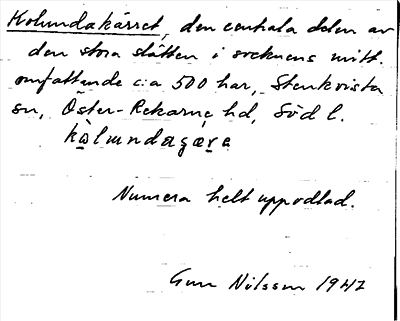 Kolundakärret, den centrala delen av
den stora slätten i socknens mitt.
omfattande c:a 500 har, Stenkvista
sn, Öster-Rekarne hd, Södl.
Numera helt uppodlad.
Gun Nilsson 1947